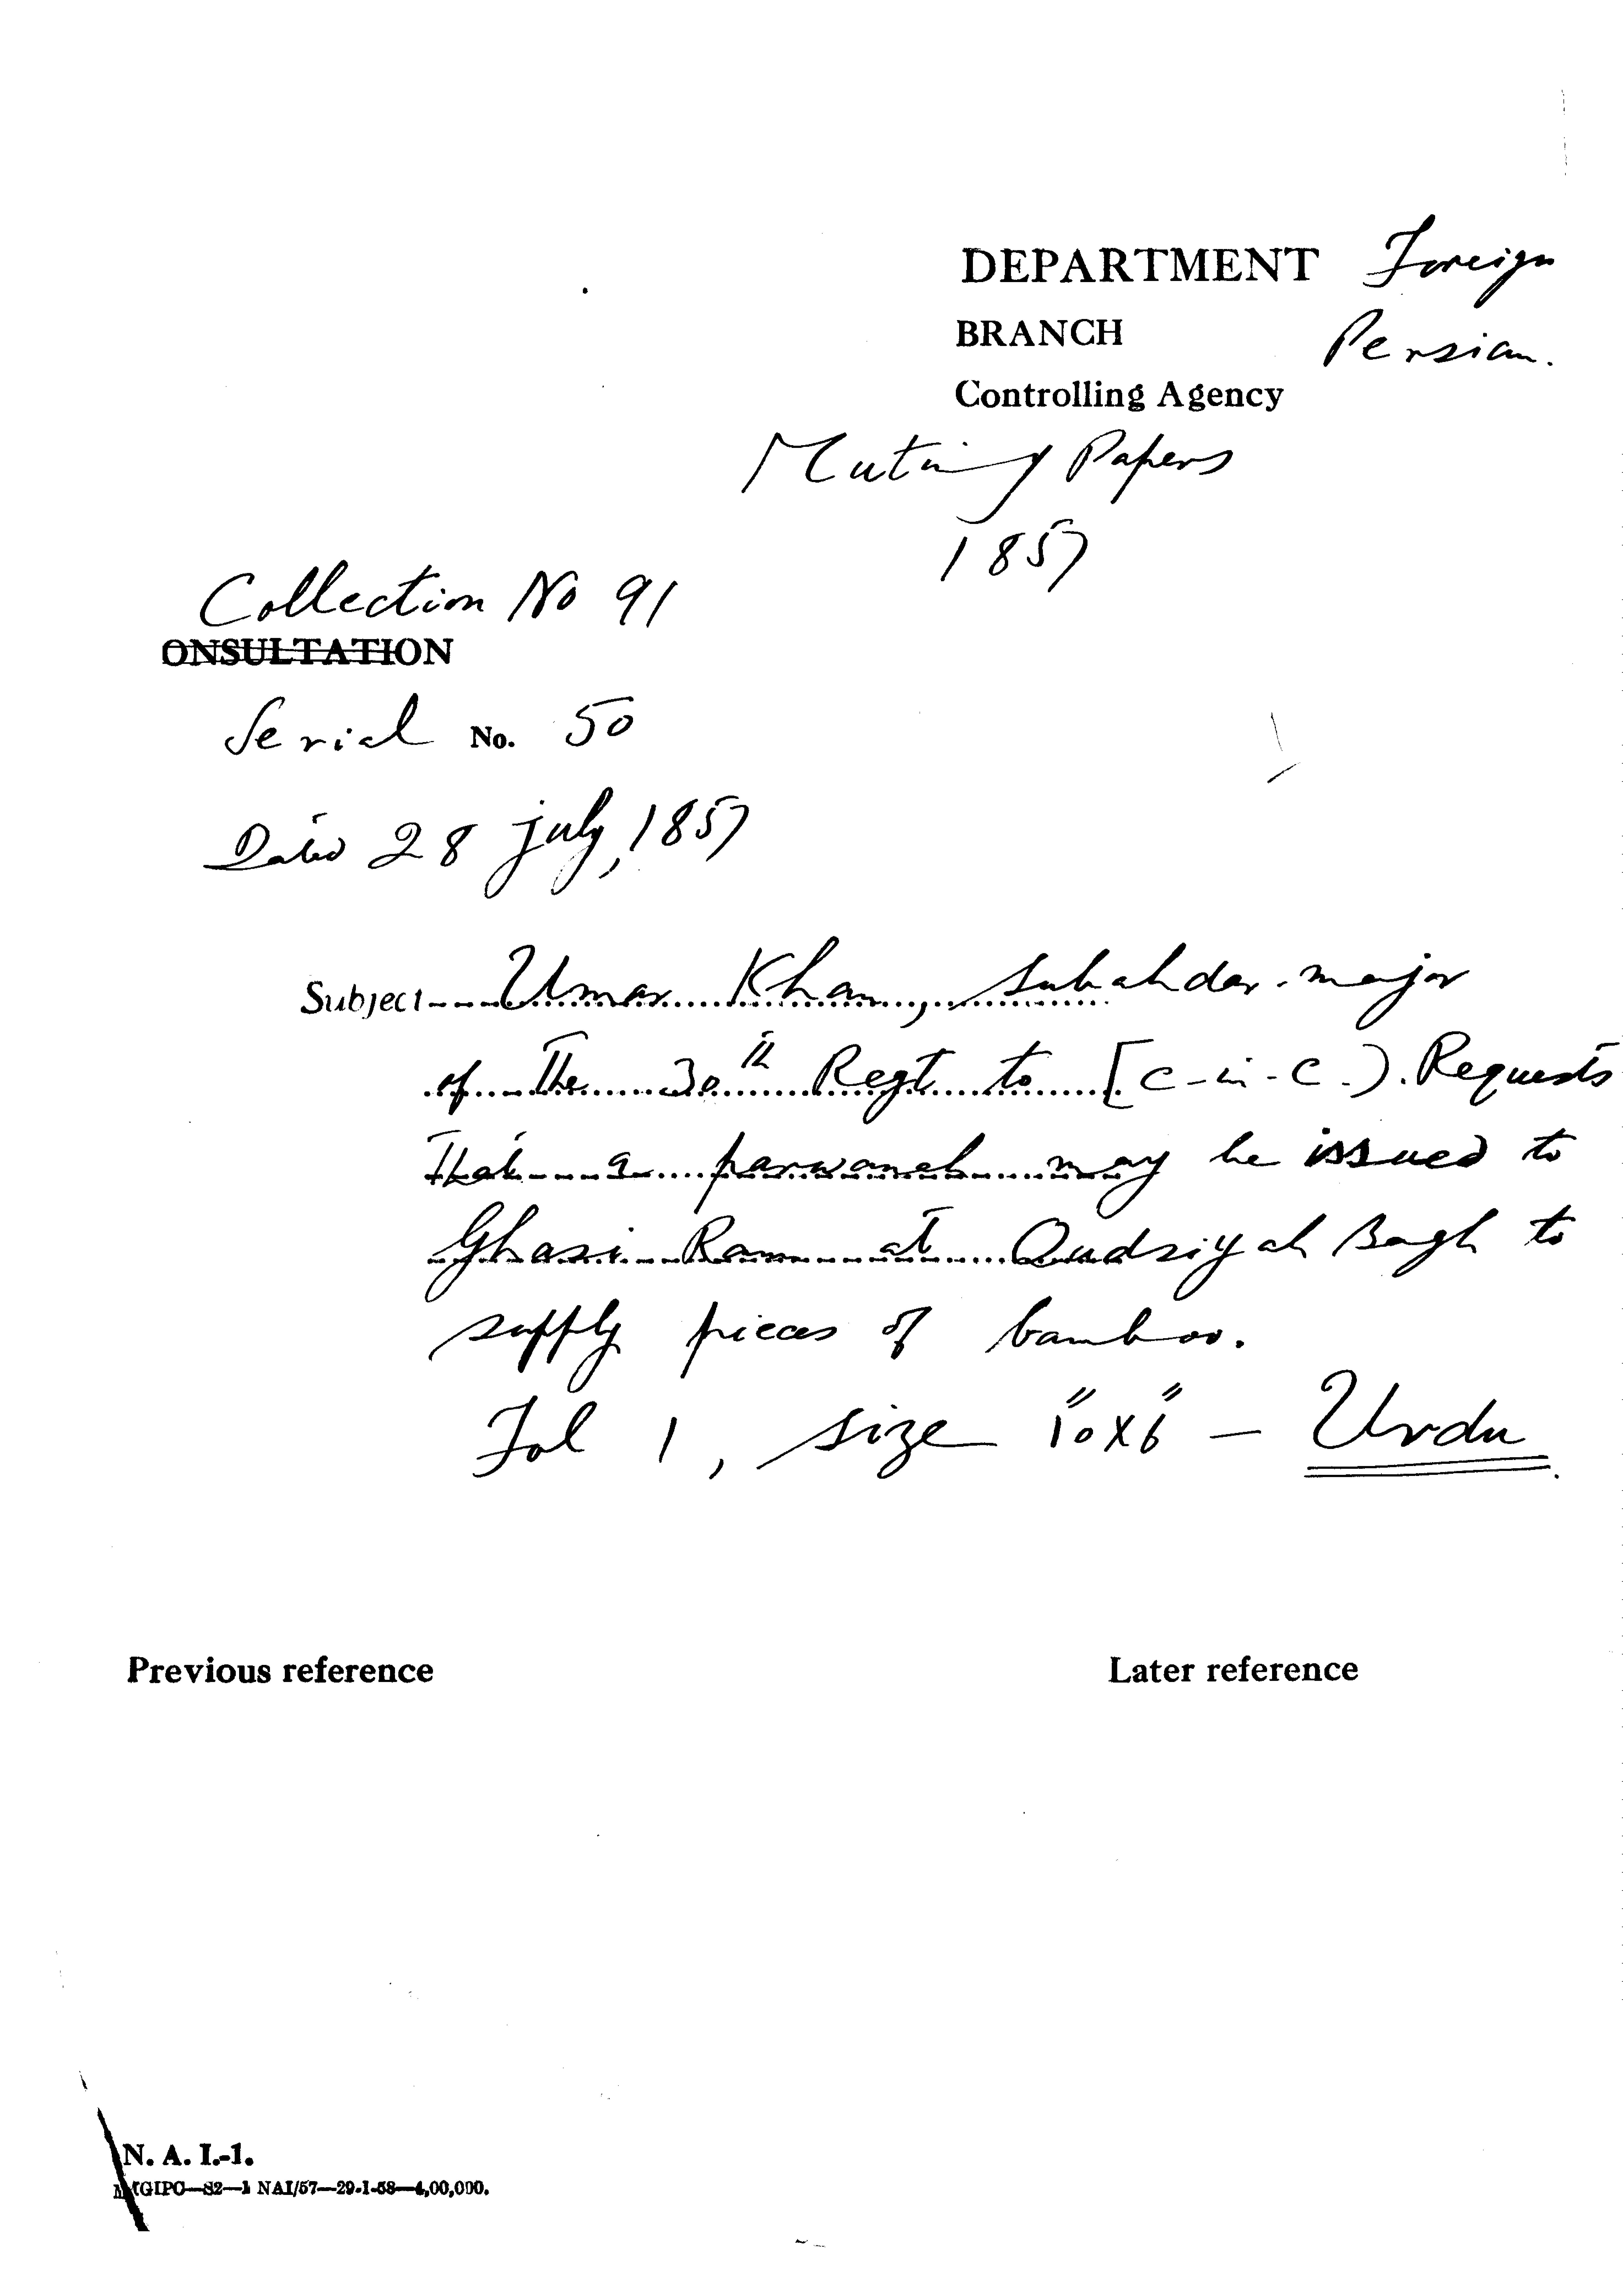 DEPARTMENT Foreign
BRANCH Persian.
Controlling Agency
Mutiny Papers
1857
Collection No 91
ONSULTATION
Serial No. 50
Dated 28 July, 1857
Subject Umar Khan, Subahdar-major
of The 30th Regt to [C-in-C.). Requests
That a parwanah may be issued to
Ghasi Ram at Qudsiyah Bagh to
supply pieces of bamboo.
Fol 1, size 10"x6" - Urdu
Previous reference
Later reference
N. A. I.-1.
MGIPC—S2—1 NAI/57—29-1-58—4,00,000.